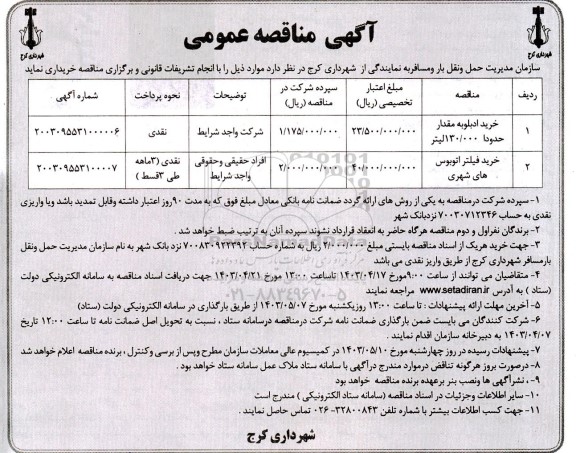 آگهی مناقصه عمومی
شهرداری کرج
شهرداری کرج
سازمان مدیریت حمل ونقل بار ومسافربه نمایندگی از شهرداری کرج در نظر دارد موارد ذیل را با انجام تشریفات قانونی و برگزاری مناقصه خریداری نماید
ردیف | مناقصه | مبلغ اعتبار تخصیصی (ریال) | سپرده شرکت در مناقصه (ریال) | توضیحات | نحوه پرداخت | شماره آگهی
۱ | خرید ادبلوبه مقدار حدودا ۱۳۰/۰۰۰لیتر | ۲۳/۵۰۰/۰۰۰/۰۰۰ | ۱/۱۷۵/۰۰۰/۰۰۰ | شرکت واجد شرایط | نقدی | ۲۰۰۳۰۹۵۵۳۱۰۰۰۰۰۶
۲ | خرید فیلتر اتوبوس های شهری | ۴۰/۰۰۰/۰۰۰/۰۰۰ | ۲/۰۰۰/۰۰۰/۰۰۰ | افراد حقیقی وحقوقی واجد شرایط | نقدی (۳ماهه طی ۳قسط ) | ۲۰۰۳۰۹۵۵۳۱۰۰۰۰۰۷
۱- سپرده شرکت درمناقصه به یکی از روش های ارائه گردد ضمانت نامه بانکی معادل مبلغ فوق که به مدت ۹۰روز اعتبار داشته وقابل تمدید باشد ویا واریزی
نقدی به حساب ۷۰۰۳۰۷۱۲۳۴۶ نزدبانک شهر
۲- برندگان نفراول و دوم مناقصه هرگاه حاضر به انعقاد قرارداد نشوند سپرده آنان به ترتیب ضبط خواهد شد .
۳- جهت خرید هریک از اسناد مناقصه بایستی مبلغ ۲/۰۰۰/۰۰۰ ریال به شماره حساب ۷۰۰۸۳۰۹۲۲۳۹۲ نزد بانک شهر به نام سازمان مدیریت حمل ونقل
بارمسافر شهرداری کرج از طریق واریز نقدی می باشد
۴- متقاضیان می توانند از ساعت ۹:۰۰مورخ ۱۴۰۳/۰۴/۱۷ تاساعت ۱۳:۰۰ مورخ ۱۴۰۳/۰۴/۲۱ جهت دریافت اسناد مناقصه به سامانه الکترونیکی دولت
(ستاد ) به آدرس www.setadiran.ir مراجعه نمایند .
۵- آخرین مهلت ارائه پیشنهادات : تا ساعت ۱۳:۰۰ روزیکشنبه مورخ ۱۴۰۳/۰۵/۰۷ از طریق بارگذاری در سامانه الکترونیکی دولت (ستاد)
۶- شرکت کنندگان می بایست ضمن بارگذاری ضمانت نامه شرکت درمناقصه درسامانه ستاد ، نسبت به تحویل اصل ضمانت نامه تا ساعت ۱۲:۰۰ تاریخ
۱۴۰۳/۰۴/۰۷ به دبیرخانه سازمان اقدام نمایند .
۷- پیشنهادات رسیده در روز چهارشنبه مورخ ۱۴۰۳/۰۵/۱۰ در کمیسیوم عالی معاملات سازمان مطرح وپس از برسی وکنترل ، برنده مناقصه اعلام خواهد شد
۸- درصورت بروز هرگونه تناقض درموارد مندرج درآگهی با سامانه ستاد ملاک عمل سامانه ستاد خواهد بود .
۹- نشرآگهی ها ونصب بنر برعهده برنده مناقصه خواهد بود
۱۰- سایر اطلاعات وجزئیات در اسناد مناقصه (سامانه ستاد الکترونیکی ) مندرج است
۱۱- جهت کسب اطلاعات بیشتر با شماره تلفن ۳۲۸۰۰۸۴۳-۰۲۶ تماس حاصل نمایند .
شهرداری کرج
۰۲۱-۸۸۳۴۹۶۷۰-۵